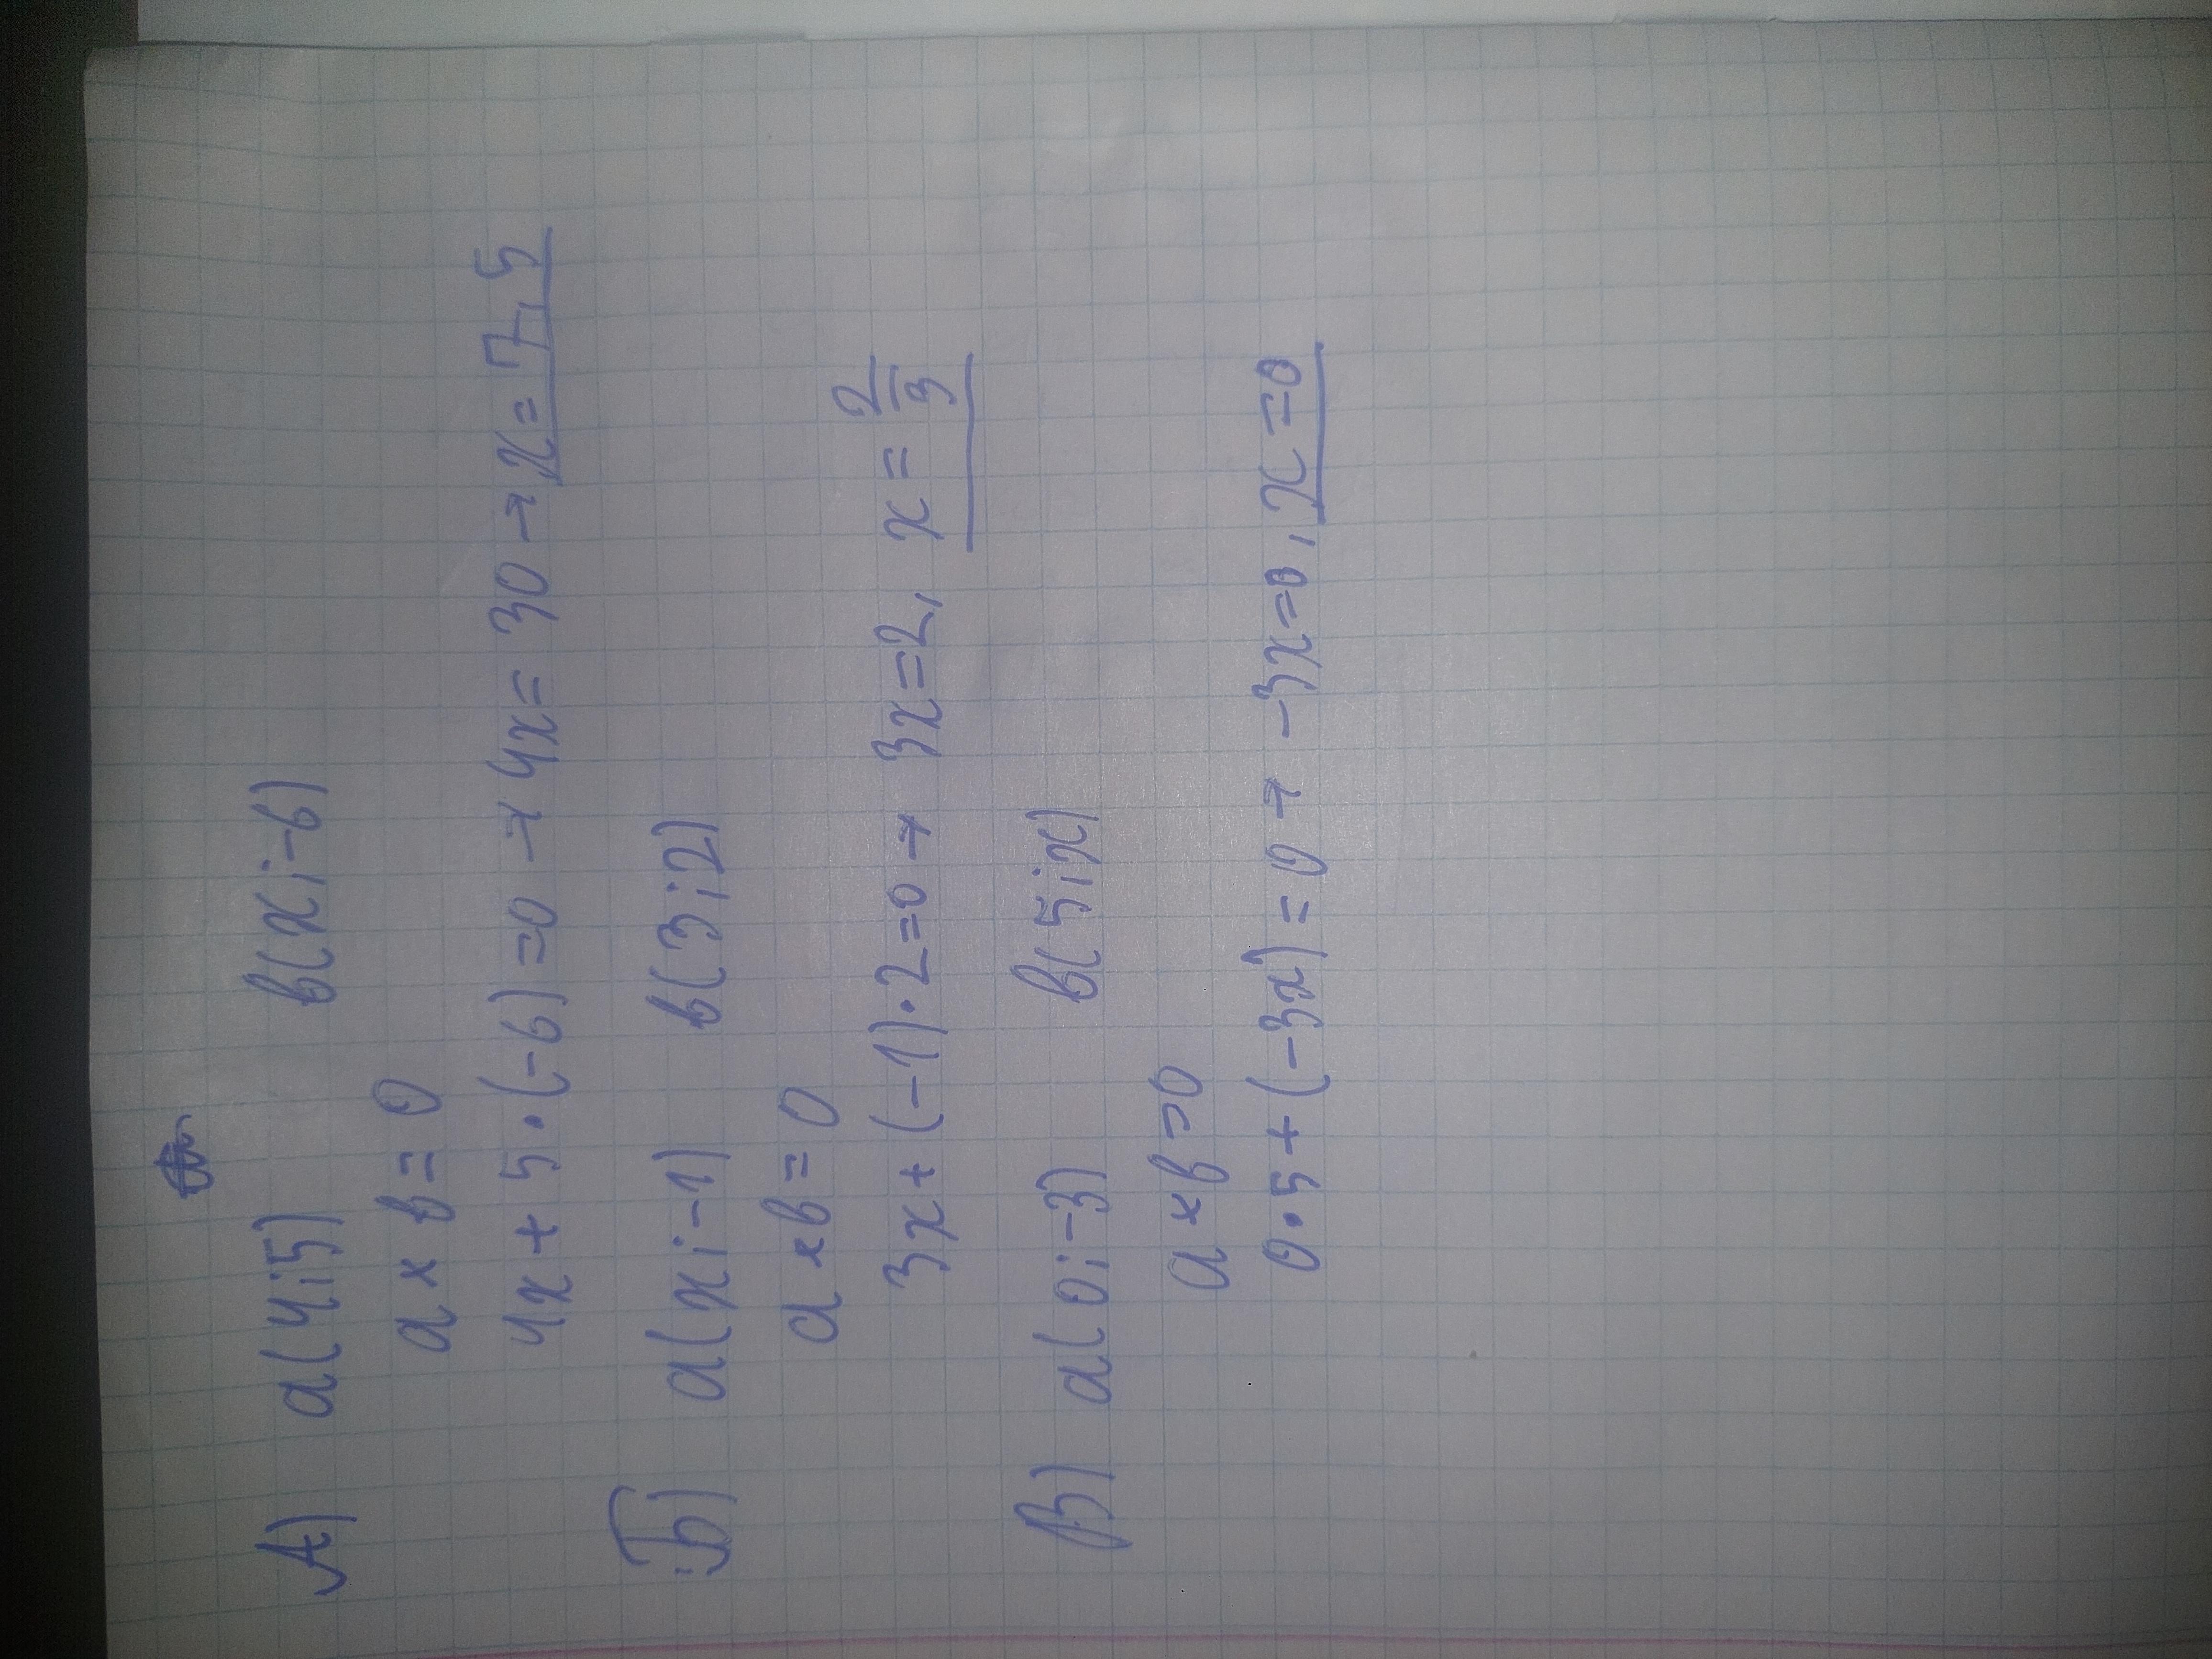 А) a(4;5) b(x;-6)
a × b = 0
4x + 5·(-6)=0 → 4x = 30 → x = 7,5
Б) a(x;-1) b(3;2)
a × b = 0
3x + (-1)·2=0 → 3x=2, x = 2/3
В) a(0;-3) b(5;x)
a × b = 0
0·5 + (-3x) = 0 → -3x=0, x=0